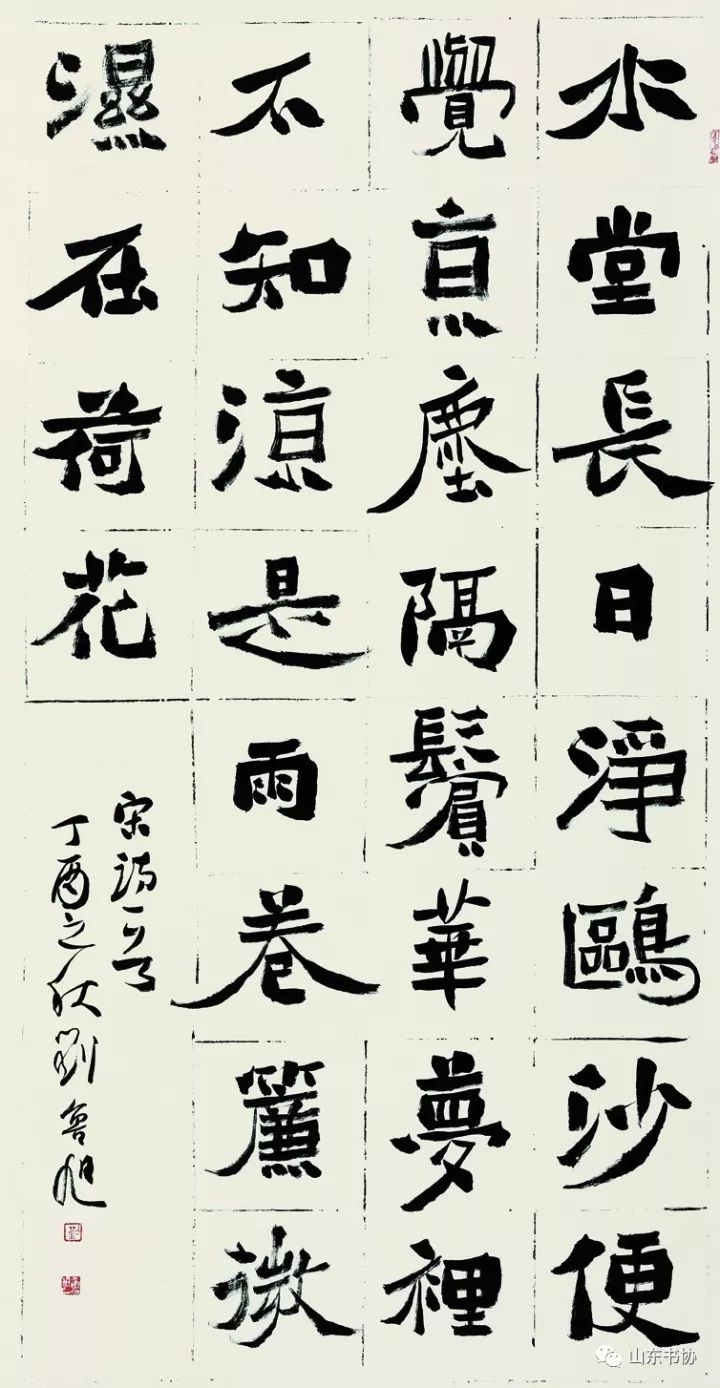 水堂長日淨鷗沙便
覺亰塵隔鬢華夢裡
不知涼是雨卷簾微
濕在荷花
宋詩一首
丁酉之秋劉魯旭
山东书协